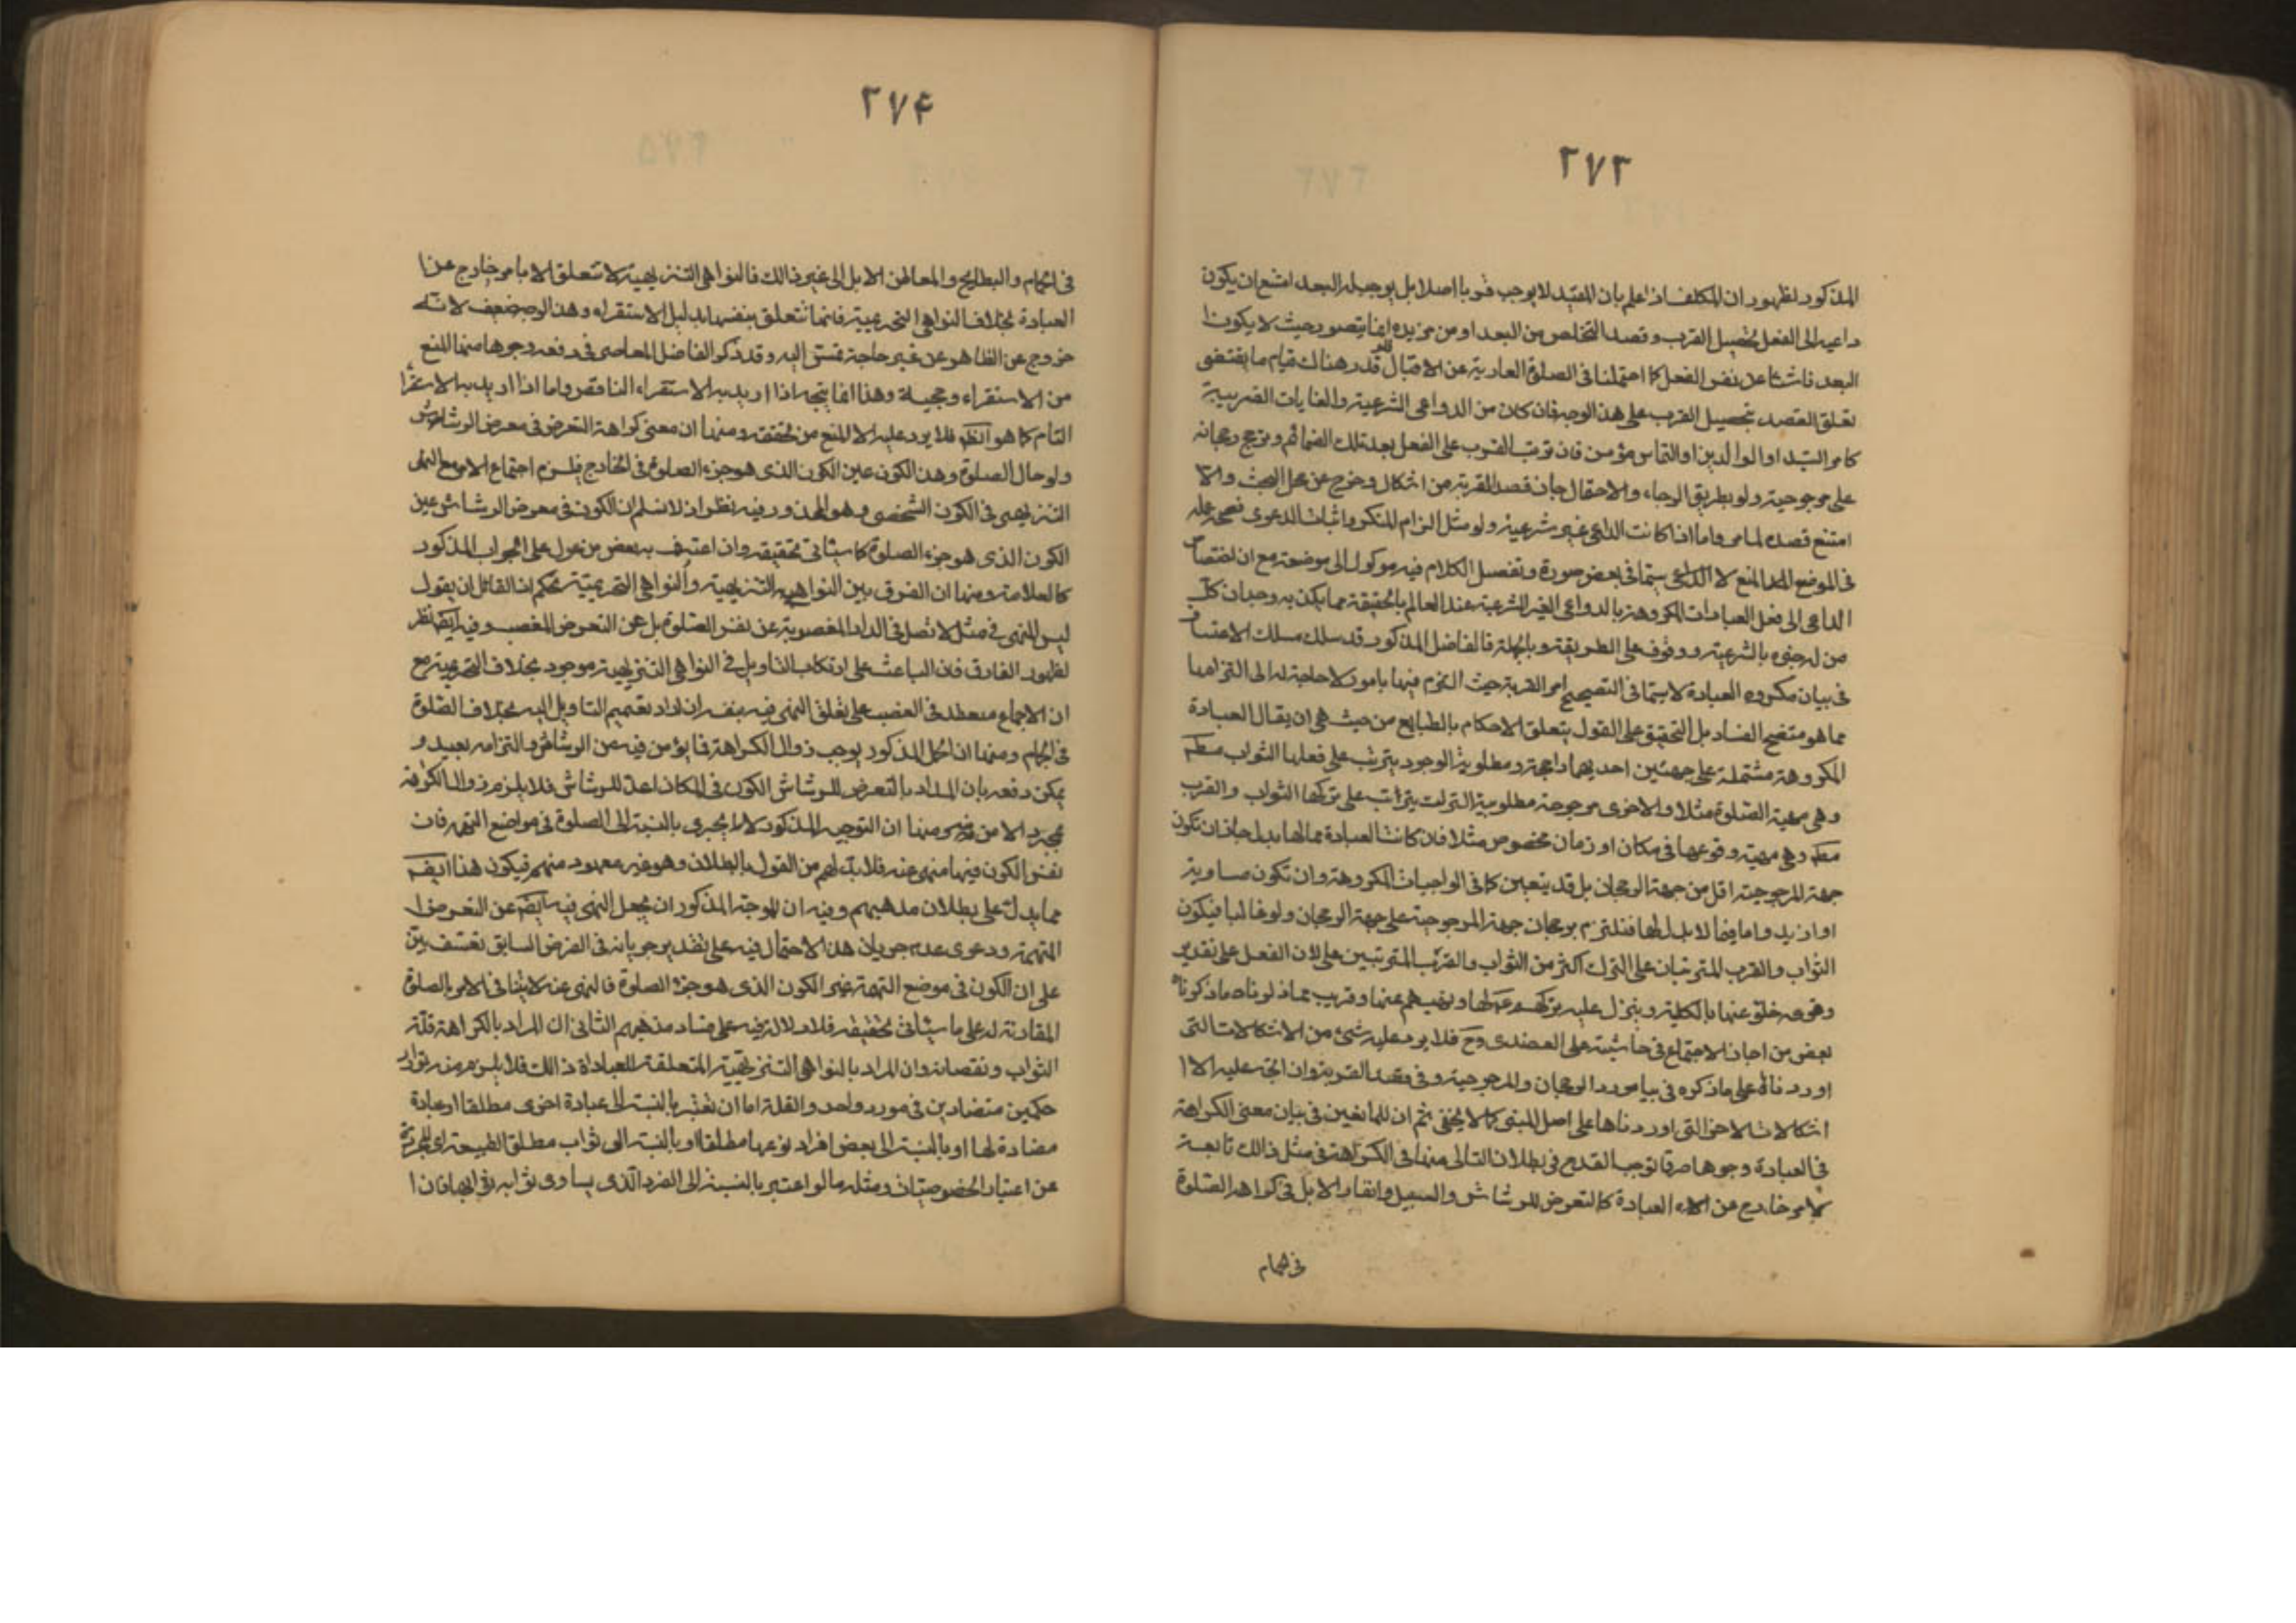 ٢٧٣
المذكور لظهور ان المكلف اذا علم بان المقيد لا يوجب قربا اصلا بل يوجب له البعد امتنع ان يكون
داعيه الى الفعل تحصيل القرب وقصد التخلص من البعد او من مزيده انما يتصور حيث لا يكون
البعد ناشئا عن نفس الفعل كما احتملنا في الصلوة العارية عن الاقبال قدر هناك قيام ما يقتضى
تعلق القصد بتحصيل القرب على هذا الوجه فان كان من الدواعى الشرعية والغايات القربية
كامر السيد او الوالدين او التماس مؤمن فان ترتب القرب على الفعل بعد تلك الضمائم وترجح رجحانه
على مرجوحيته ولو بطريق الرجاء والاحتمال جاز قصد القربة من اشكال وخرج عن محل البحث والا
امتنع قصده لما مر واما اذا كانت الداعى غير شرعية ولو مثل الزام المنكر واثبات الدعوى فصحة
في الموضع المنع لا سيما في بعض صورة وتفصيل الكلام فيه موكول الى موضعه مع ان اختصاص
الداعى الى فعل العبادات المكروهة بالدواعى الغير الشرعية عند العالم بالحقيقة مما يكذبه وجدان كل
من له خبره بالشرعية ووقوف على الطريقة وبالجملة فالفاضل المذكور قد سلك مسلك الاعتساف
في بيان مكروه العبادة لا سيما في التصحيح امر القربة حيث التزم فيها بامور لا حاجة له الى التزامها
مما هو متضح الفساد بل التحقيق على القول بتعلق الاحكام بالطبايع من حيث هى ان يقال العبادة
المكروهة مشتملة على جهتين احديهما راجحة ومطلوبة الوجود يترتب على فعلها الثواب مطم
وهى مهية الصلوة مثلا والاخرى مرجوحة مطلوبية الترك يترتب على تركها الثواب والقرب
مطم وهى مهية وقوعها في مكان او زمان مخصوص مثلا فان كانت العبادة مما لها بدل جاز ان تكون
جهة المرجوحية اقل من جهة الرجحان بل قد يتعين كما في الواجبات المكروهة وان تكون مساوية
او ازيد واما فيما لا بدل لها فنلتزم برجحان جهة المرجوحية على جهة الرجحان ولو غالبا فيكون
الثواب والقرب المترتبان على الترك اكثر من الثواب والقرب المترتبين على الفعل على تقدير
وقوعه خلو عنها بالكلية وينزل عليه تركهم لها ونهيهم عنها وقريب مما ذكرناه ما ذكره
بعض من اجاز الاجتماع في حاشيته على العضدى وح فلا يرد عليه شئ من الاشكالات التى
اوردناه على ما ذكره في بيا مورد الرجحان والمرجوحية وفى مقصد القربة وان اتجه عليه الا
اشكالات الاخر التى اوردناها على اصل المبنى كما لا يخفى ثم ان للمانعين في بيان معنى الكراهة
في العبادة وجوها صرفا توجب القدح في بطلان التالى منها ان الكراهة في مثل ذالك تابعة
لامر خارج عن العبادة كالتعرض للرشاش والسيل وانفار الابل في كراهة الصلوة
في الحمام
٢٧۴
في الحمام والبطايح والمعاطن الابل الى غير ذالك فالنواهى التنزيهية لا تتعلق الا بامر خارج عن
العبادة بخلاف النواهى التحريمية فانها تتعلق بنفسها بدليل الاستقراء وهذا الوجه ضعيف لانه
خروج عن الظاهر من غير حاجة تمس اليه وقد ذكر الفاضل المعاصر في دفعه وجوها منها المنع
من الاستقراء وحجيته وهذا انما يتجه اذا اريد به الاستقراء الناقص واما اذا اريد به الاستقراء
التام كما هو الظم فلا يرد عليه الا المنع من تحققه ومنها ان معنى كراهة التعرض في معرض الرشاش
ولو حال الصلوة وهذا الكون عين الكون الذى هو جزء الصلوة في الخارج فيلزم اجتماع الامر مع النهى
التنزيهى في الكون الشخصى وهو المحذور وفيه نظر اذ لا نسلم ان الكون في معرض الرشاش عين
الكون الذى هو جزء الصلوة كما سياتى تحقيقه وان اعترف به بعض من عول على الجواب المذكور
كالعلامة ومنها ان الفرق بين النواهى التنزيهية والنواهى التحريمية تحكم اذ القائل ان يقول
ليس النهى في مثل لا تصل في الدار المغصوبة عن نفس الصلوة بل عن التعرض للغصب وفيه ايضا نظر
لظهور الفارق فان الباعث على ارتكاب التاويل في النواهى التنزيهية موجود بخلاف التحريمية مع
ان الاجماع منعقد في الغصب على تعلق النهى فيه بنفس ان اراد تعميم التاويل اليه بخلاف الصلوة
في الحمام ومنها ان الحمل المذكور يوجب زوال الكراهة فيما يؤمن فيه من الرشاش والتزامه بعيد و
يمكن دفعه بان المراد بالتعرض للرشاش الكون في المكان اعد للرشاش فلا يلزم زوال الكراهة
بمجرد الامن ومنها ان التوجيه المذكور لا يجرى بالنسبة الى الصلوة في مواضع التهمة فان
نفس الكون فيها منهى عنه فلا بد لهم من القول بالبطلان وهو غير معهود منهم فيكون هذا ايضا
مما يدل على بطلان مذهبهم وفيه ان للموجه المذكور ان يجعل النهى فيه ايضا عن التعرض
للتهمة ودعوى عدم جريان هذا الاحتمال فيه على تقدير جريانه في الفرض السابق تعسف بين
على ان الكون في موضع التهمة غير الكون الذى هو جزء الصلوة فالنهى عنه لا ينافى الامر بالصلوة
المقارنة له على ما سياتى تحقيقه فلا دلالة فيه على فساد مذهبهم الثانى ان المراد بالكراهة قلة
الثواب ونقصانه وان المراد بالنواهى التنزيهية المتعلقة للعبادة ذالك فلا يلزم من توارد
حكمين متضادين في مورد واحد والقلة اما ان تعتبر بالنسبة الى عبادة اخرى مطلقا او عبادة
مضادة لها او بالنسبة الى بعض افراد نوعها مطلقا او بالنسبة الى ثواب مطلق الطبيعة اى المجردة
عن اعتبار الخصوصيات ومثله ما لو اعتبر بالنسبة الى الفرد الذى يساوى ثوابه ثوابها فان